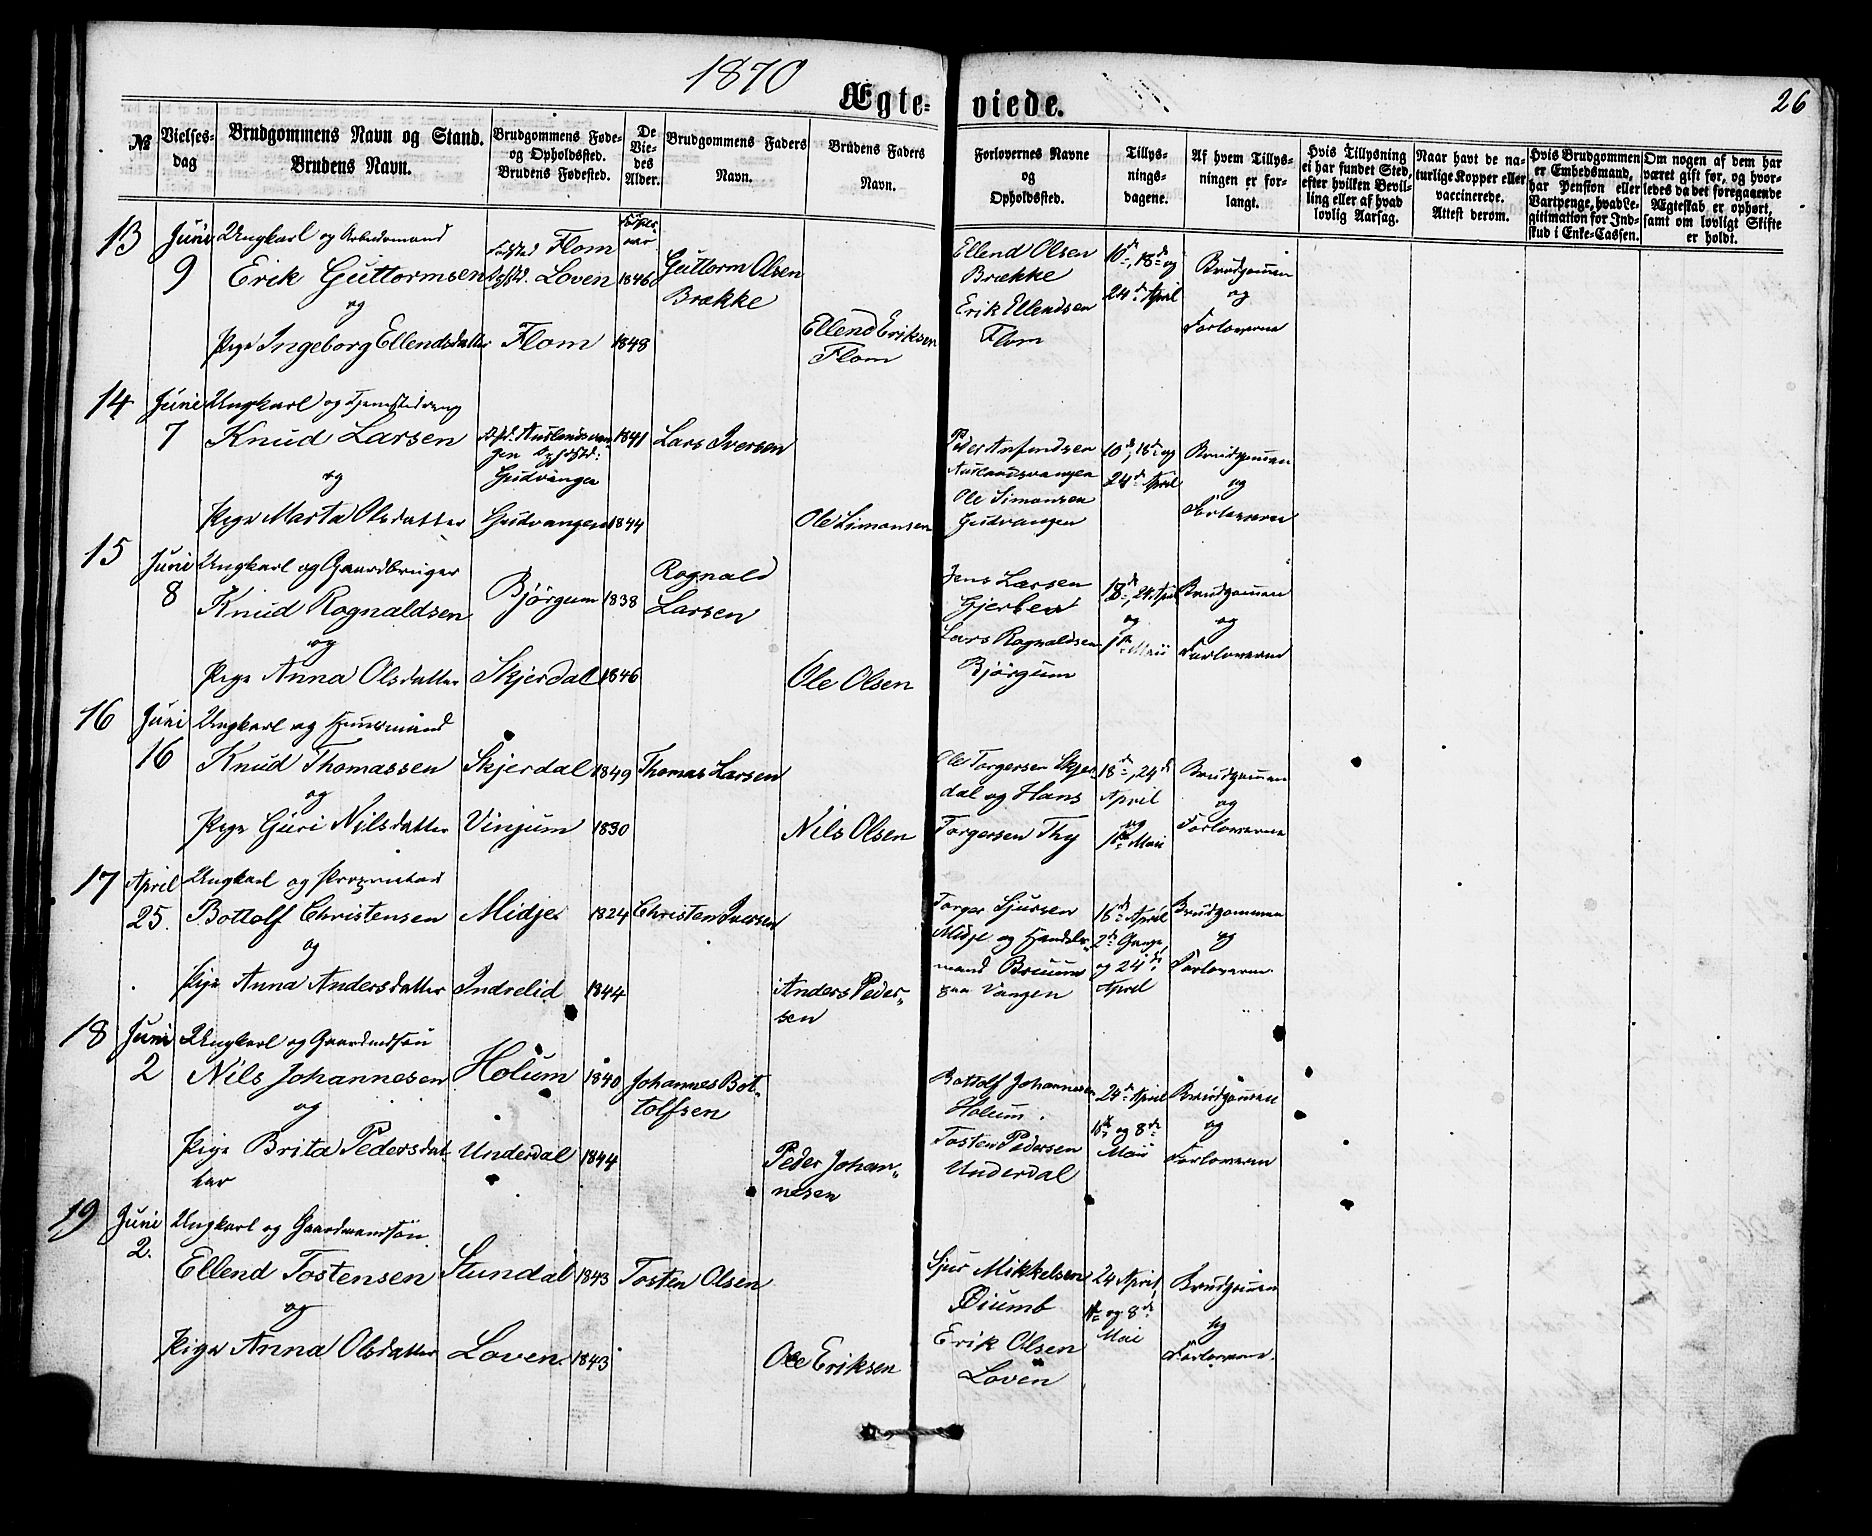 1870
26
Ægteviede.
№
Vielsesdag
Brudgommens Navn og Stand.
Brudens Navn.
Brudgommens Føde- og Opholdsted.
Brudens Fødested.
De Viedes Alder.
Brudgommens Faders Navn.
Brudens Faders Navn.
Forlovernes Navne og Opholdsted.
Tillysningsdagene.
Af hvem Tillysningen er forlangt.
Hvis Tillysning ei har fundet Sted, efter hvilken Bevilling eller af hvad lovlig Aarsag.
Naar havt de naturlige Kopper eller vaccinerede. Attest derom.
Hvis Brudgommen er Embedsmand, har Pension eller Vartpenge, hvad Legitimation for Indskud i Enke-Cassen.
Om nogen af dem har været gift før, og hvorledes da det foregaaende Ægteskab er ophørt, samt om lovligt Skifte er holdt.
13 Juni 9
Ungkarl og Arbeidsmand
Erik Guttormsen
og
Pige Ingeborg Ellendsdatter
Fødsted Flom
Opholdst. Loven
Flom
Fødselsaar
1846
1848
Guttorm Olsen
Brække
Ellend Eriksen
Flom
Ellend Olsen
Brække
Erik Ellendsen
Flom
10de, 18de og
24de April
Brudgommen
og
Forloverne
14 Juni 7
Ungkarl og Tjenestedreng
Knud Larsen
og
Pige Marta Olsdatter
Aurlandsvangen
Gudvangen
Gudvangen
1841
1844
Lars Iversen
Ole Simonsen
Peder Anfindsen
Aurlandsvangen
Ole Simonsen
Gudvangen
10de, 18de og
24de April
Brudgommen
og
Forloverne
15 Juni 8
Ungkarl og Gaardbruger
Knud Rognaldsen
og
Pige Anna Olsdatter
Bjørgum
Skjerdal
1838
1846
Rognald
Larsen
Ole Olsen
Jens Larsen
Lars Rognaldsen
Bjørgum
18de, 24 April
og
1ste Maii
Brudgommen
og
Forloverne
16 Juni 16
Ungkarl og Huusmand
Knud Thomassen
og
Pige Guri Nilsdatter
Skjerdal
Vinjum
1849
1830
Thomas Larsen
Nils Olsen
Ole Torgersen Skjerdal og Hans
Torgersen Thy
18de, 24de
April
og
1ste Maii
Brudgommen
og
Forloverne
17 April 25.
Ungkarl og Proprietær
Bottolf Christensen
og
Pige Anna Andersdatter
Midje
Indrelid
1824
1844
Christen Iversen
Anders Pedersen
Torger Sjursen
Midje og Handelsmand Bruun
paa Vangen
18de April
2de Gange
og 24de
April
Brudgommen
og
Forloverne
18 Juni 2
Ungkarl og Gaardmdsøn
Nils Johannesen
og
Pige Brita Pedersdatter
Holum
Underdal
1840
1844
Johannes Bottolfsen
Peder Johannesen
Bottolf Johannesen
Holum.
Tosten Pedersen
Underdal
24de April
1ste og 8de
Maii
Brudgommen
og
Forloverne
19 Juni 2.
Ungkarl og Gaardmandsøn
Ellend Tostensen
og
Pige Anna Olsdatter
Stundal
Loven
1843
1843
Tosten Olsen
Ole Eriksen
Sjur Mikkelsen
Øiumb
Erik Olsen
Loven
24 April,
1ste og 8de
Mai
Brudgommen
og
Forloverne.